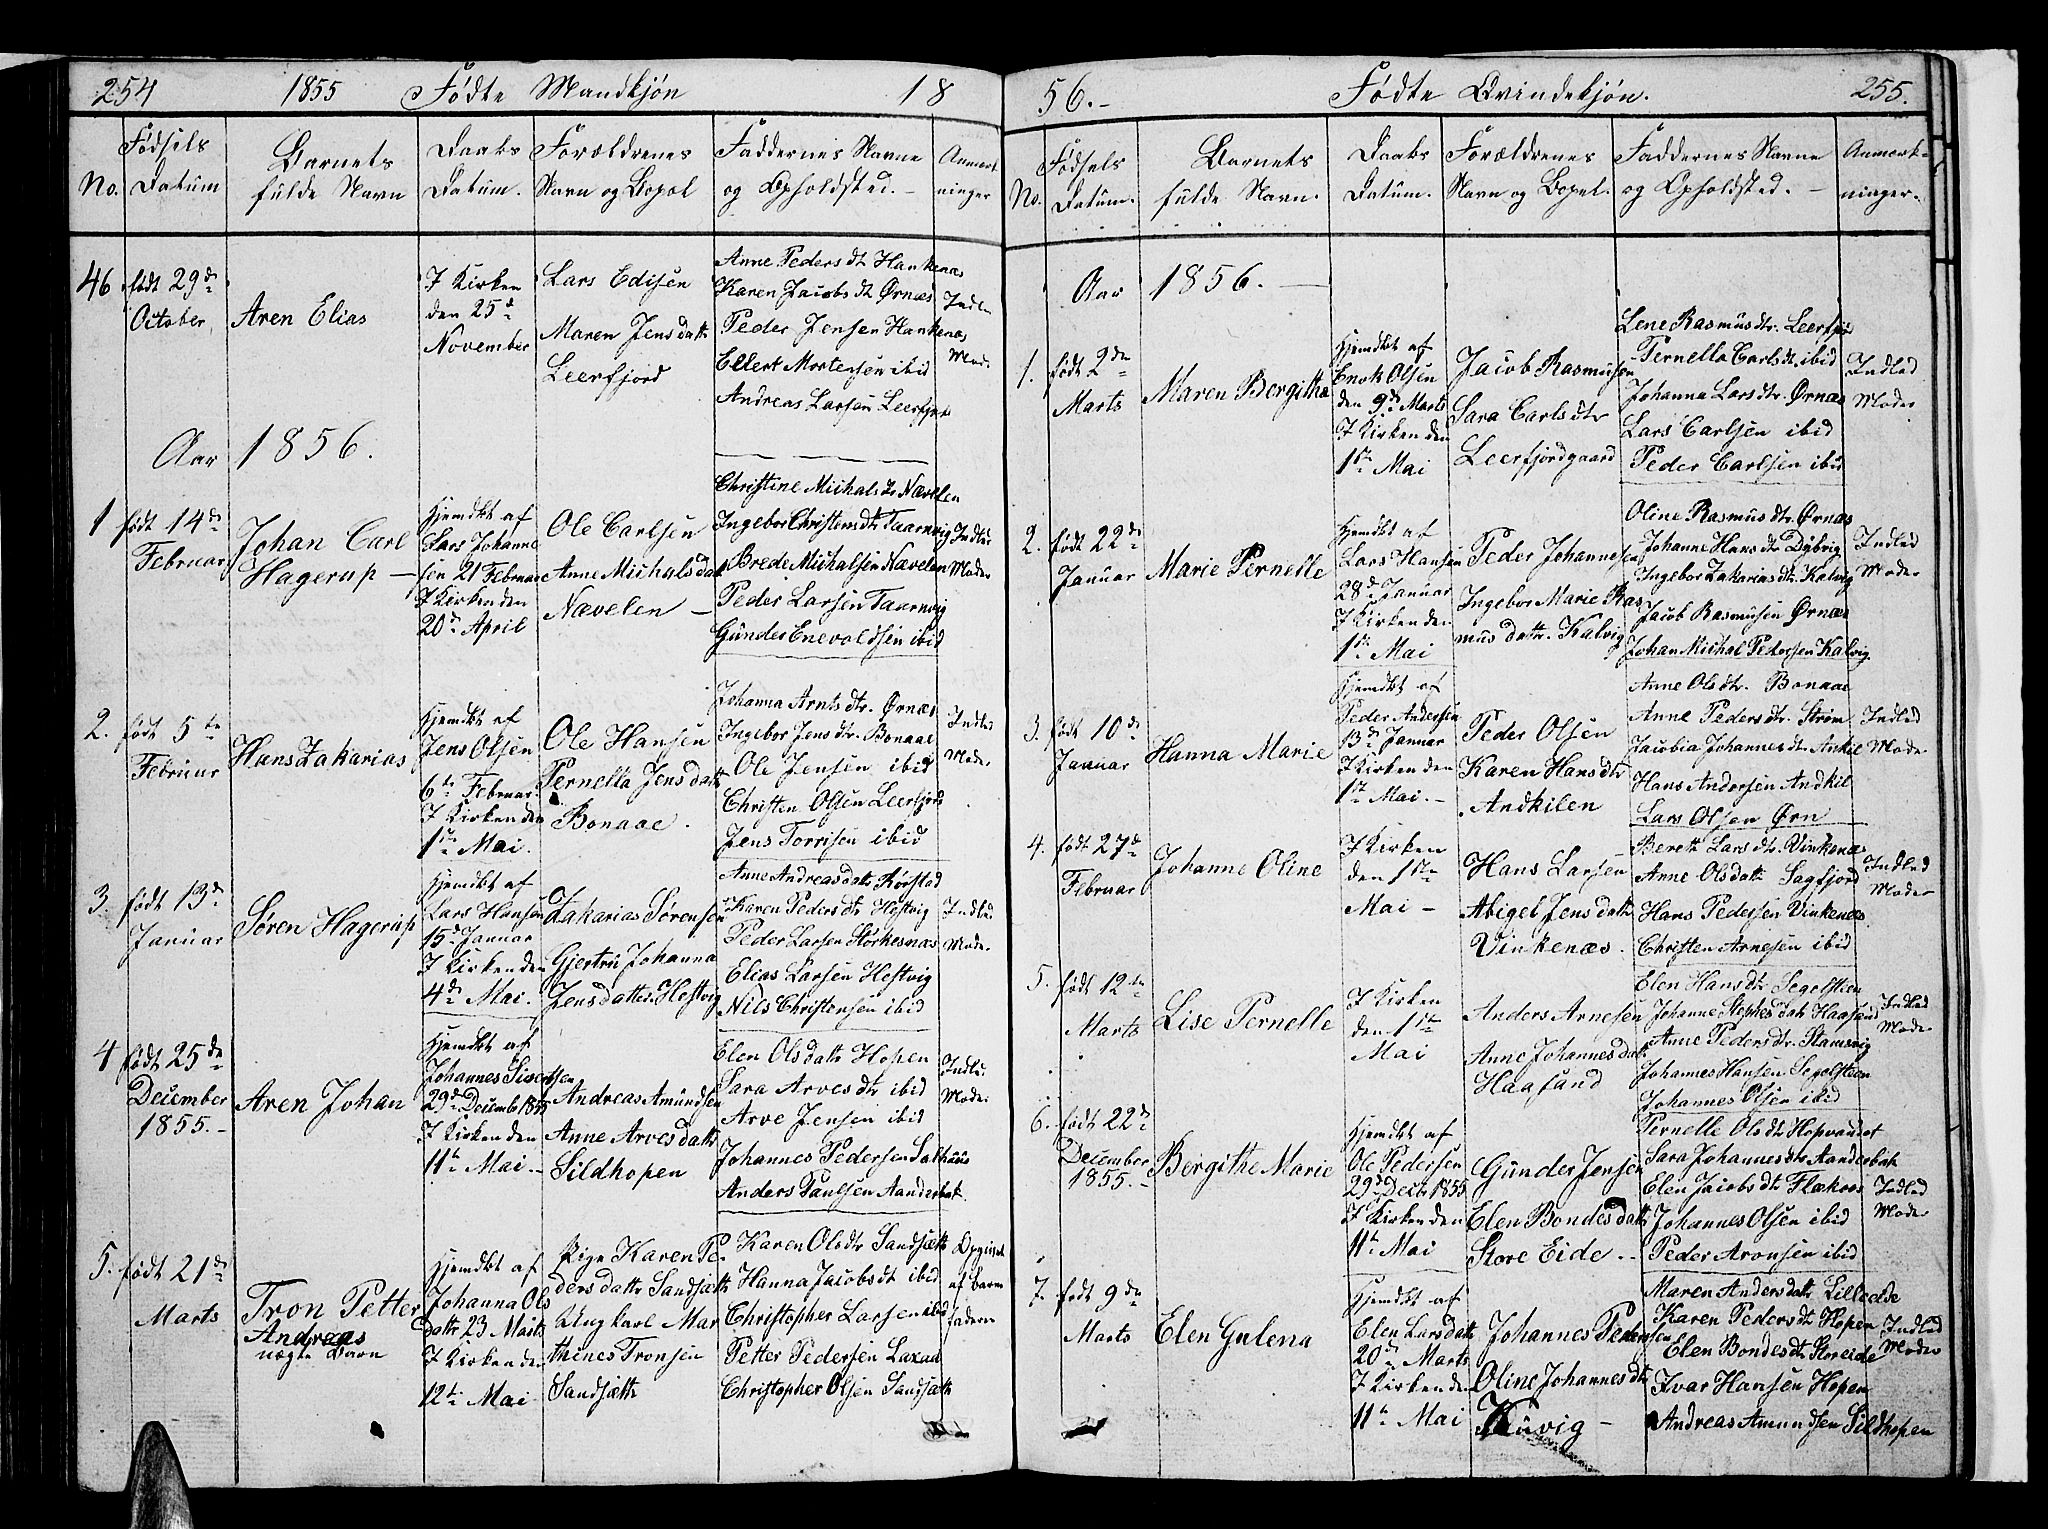 254 1855 Fødte Mandkjøn 18
No. Fødsels Datum
Barnets fulde Navn
Daabs Datum.
Forældrenes Navn og Bopel
Faddernes Navne og Opholdsted. -
Anmærkninger
46 født 29de October
Aren Elias
I Kirken
den 25de
November
Lars Edisen
Maren Jensdatt
Leerfjord
Anne Pedersdt Hankenæs
Karen Jacobsdt Ørnæs
Peder Jensen Hankenæs
Ellert Mortensen ibid
Andreas Larsen Leerfjord
Indled
Mod.
Aar 1856.
1 født 14de
Februar
Johan Carl
Hagerup —
Hjemdbt af
Lars Johanne
sen 21 Februar
I Kirken den
20de April
Ole Carlsen
Anne Michalsdatt
Nævelen —
Christine Michalsdt Nævelen
Ingebor Christensdtr Taarnvig
Brede Michalsen Nævelen
Peder Larsen Taarnvig
Gunder Enevoldsen ibid
Indled
Moder
2. født 5te
Februar
Hans Zakarias
Hjemdbt af
Jens Olsen
6te Februar
I Kirken den
1ste Mai.
Ole Hansen
Pernella Jensdatt
Bonaae.
Johanna Arntsdtr. Ørnæs
Ingebor Jensdtr. Bonaae
Ole Jensen ibid
Christen Olsen Leerfjord
Jens Torrisen ibid
Indled
Moder
3 født 13de
Januar
Søren Hagerup
Hjemdbt af
Lars Hansen
15de Januar
I Kirken den
4de Mai.
Zakarias Sørensen
Gjertru Johanna
Jensdatter Hestvig
Anne Andreasdatt Rørstad
Karen Pedersdtr Hestvig
Peder Larsen Størkesnæs
Elias Larsen Hestvig
Nils Christensen ibid
Indled
Moder
4 født 25de
December
1855. -
Aren Johan
Hjemdbt af
Johannes Sivertsen
29de Decemb 1855
I Kirken den
11te Mai -
Andreas Amundsen
Anne Arvesdatt
Sildhopen
Elen Olsdatt Hopen
Sara Arvesdtr ibid
Arve Jensen ibid
Johannes Pedersen Salhuus
Anders Paulsen Aanderbak.
Indled
Moder
5. født 21de
Marts
Tron Petter
Andreas
uægte Barn
Hjemdbt af
Johanna Ols
datt 23 Marts
I Kirken den
12te Mai
Pige Karen Pe-
dersdatt Sandsætt
Ungkarl Mar
thines Tronsen
Sandsætt
Karen Olsdtr Sandsætt
Hanna Jacobsdt ibid
Christopher Larsen ibid
Petter Pedersen Laxaa
Christopher Olsen Sandsætt
Opgivet
af Barne
faderen
56. - Fødte Qvindekjøn. 255.
No. Fødsels Datum.
Barnets fulde Navn.
Daabs Datum.
Forældrenes Navn og Bopel.
Faddernes Navne og Opholdsted. -
Anmærkninger.
Aar 1856. —
1. født 2den
Marts
Maren Bergitha
Hjemdbt af
Enok Olsen
den 9de Marts
I Kirken den
1ste Mai
Jacob Rasmusen
Sara Carlsdtr
Leerfjordgaard
Lene Rasmusdtr. Leerfjor
Pernella Carlsdt. ibid
Johanna Larsdtr. Ørnæs
Lars Carlsen ibid
Peder Carlsen ibid
Indled
Moder
2. født 22de
Januar
Marie Pernelle
Hjemdbt af
Lars Hansen
28de Januar
I Kirken den
1ste Mai
Peder Johannesen
Ingebor Marie Ras
musdattr. Kalvig
Oline Rasmusdtr. Ørnæs
Johanne Hansdtr Dybvig
Ingebor Zakariasdtr. Kalvig
Jacob Rasmusen Ørnæs
Johan Michal Petersen Kalvig
Indled
Moder
3. født 10de
Januar
Hanna Marie
Hjemdbt af
Peder Andersen
13de Januar
I Kirken den
1ste Mai. -
Peder Olsen
Karen Hansdtr
Andkilen
Anne Olsdtr. Bonaae
Anne Pedersdtr. Strøm
Jacobia Johannesdtr. Ankil
Hans Andersen Andkil
Lars Olsen Ørn
Indled
Moder
4. født 27de
Februar
Johanne Oline
I Kirken
den 1ste
Mai -
Hans Larsen
Abigel Jensdatt
Vinkenæs.
Bereth Larsdtr. Vinkenæs
Anne Olsdatt Sagfjord
Hans Pedersen Vinkenæs
Christen Arnesen ibid
Indled
Moder
5. født 12te
Marts
Lise Pernelle
I Kirken
den 1ste
Mai
Anders Arnesen
Anne Johannesdatt
Haasund
Elen Hansdtr Segelsteen
Johanne Stephesdatt Haasund
Anne Pedersdtr. Stamsvig
Johannes Hansen Segelsteen
Johannes Olsen ibid
Indled
Moder
6. født 22de
December
1855. -
Bergithe Marie
Hjemdbt af
Ole Pedersen
29de Decb 1855
I Kirken den
11te Mai
Gunder Jensen
Elen Bondesdatt
Store Eide -
Pernelle Olsdtr Hopvandet
Sara Johannesdtr Aanderbak
Elen Jacobsdtr Flækoos
Johannes Olsen ibid
Peder Aronsen ibid
Indled
Moder
7. født 9de
Marts
Elen Gulena
Hjemdbt af
Elen Larsdatt
20de Marts
I Kirken den
11te Mai
Johannes Pedersen
Oline Johannesdtr
Kuvig —
Maren Andersdatt Lilleeide
Karen Pedersdtr Hopen
Elen Bondesdtr Storeide
Ivar Hansen Hopen
Andreas Amundsen Sildhopen
Indled
Moder